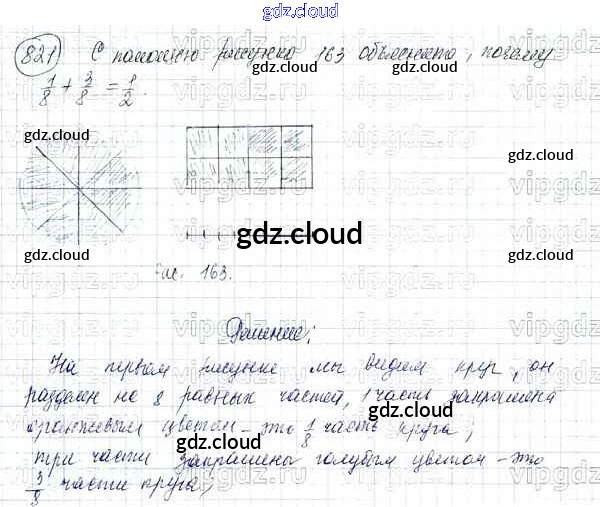 gdz.cloud
821) С помощью рисунка 163 объясните, почему
1/8 + 3/8 = 1/2.
gdz.cloud
gdz.cloud
gdz.cloud
gdz.cloud
gdz.cloud
gdz.cloud
gdz.cloud
Рис. 163.
Решение:
На первом рисунке мы видим круг, он
разделен на 8 равных частей, 1 часть закрашена
оранжевым цветом – это 1/8 часть круга;
три части закрашены голубым цветом – это
3/8 части круга;